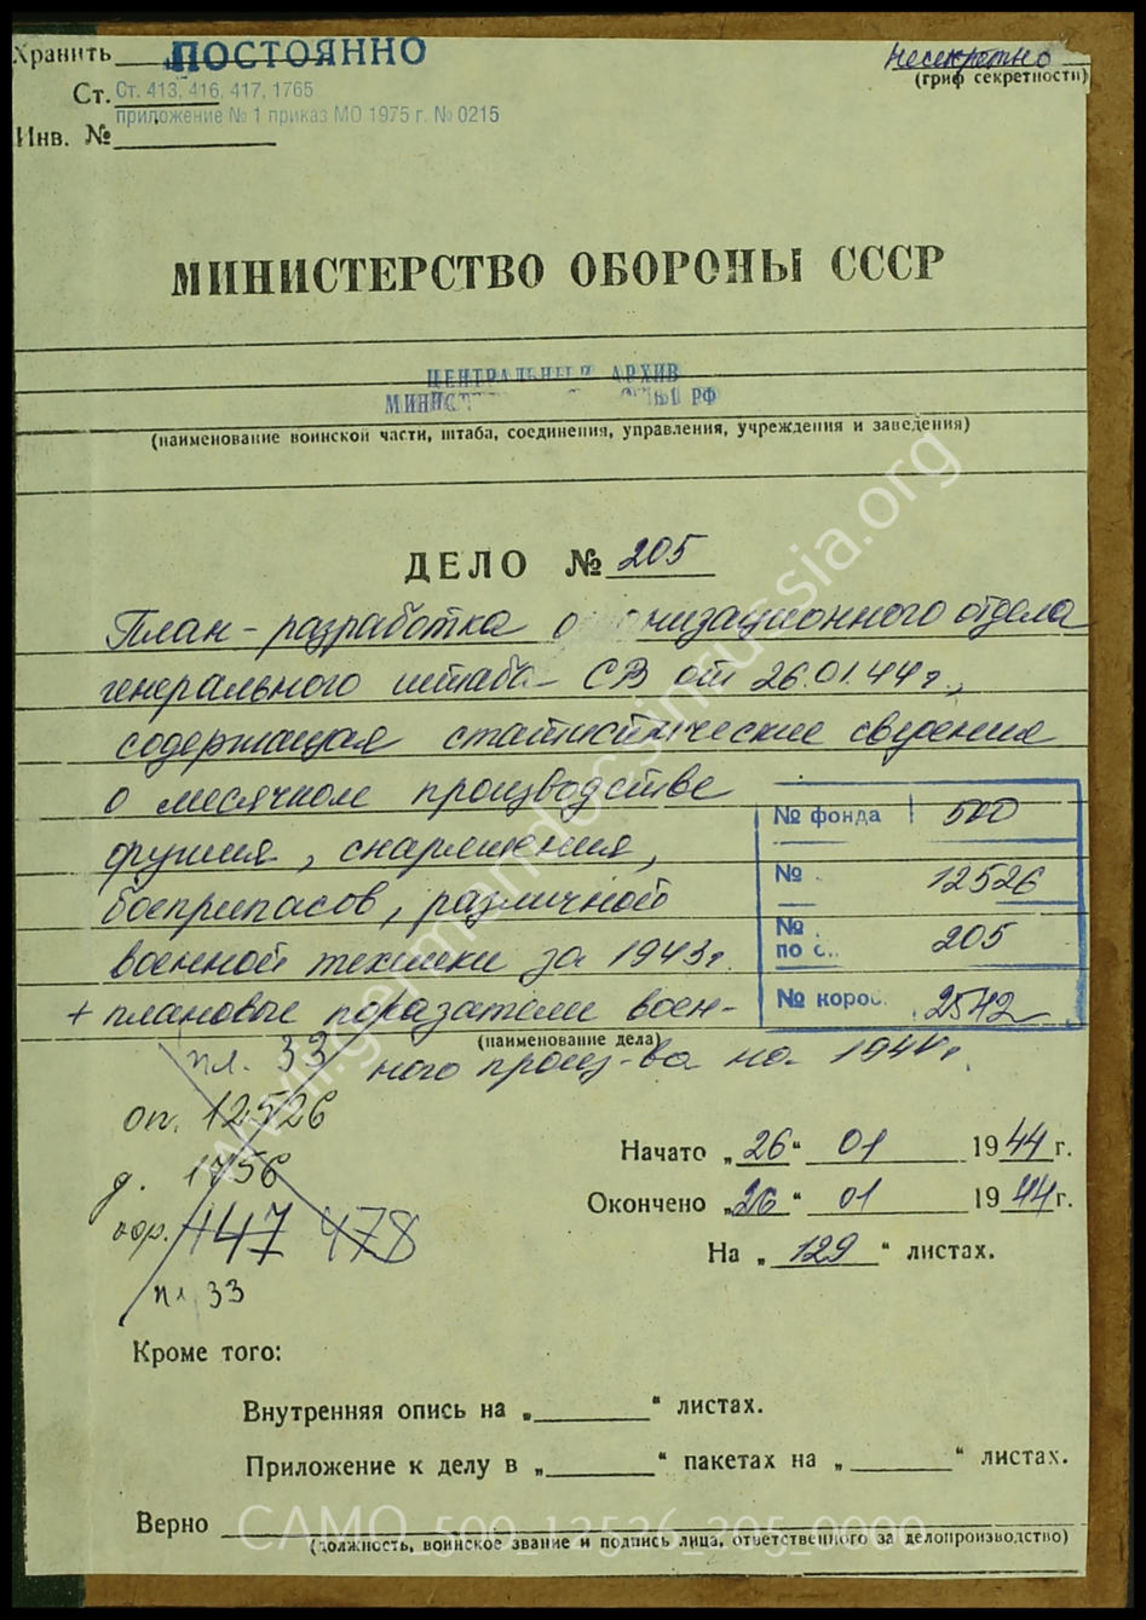 Хранить ПОСТОЯННО
несекретно
(гриф секретности)
Ст. Ст. 413, 416, 417, 1765
приложение № 1 приказ МО 1975 г. № 0215
Инв. №
МИНИСТЕРСТВО ОБОРОНЫ СССР
ЦЕНТРАЛЬНЫЙ АРХИВ
РФ
(наименование воинской части, штаба, соединения, управления, учреждения и заведения)
ДЕЛО № 205
План-разработка организационного отдела
генерального штаба СВ от 26.01.44 г.,
содержащая статистические сведения
о месячном производстве
оружия, снаряжения,
боеприпасов, различной
военной техники за 1943 г.
+ плановые показатели воен-
(наименование дела)
ного произ-ва на 1944 г.
№ фонда 500
№ 12526
№ 205
по о
№ короб. 2542
пл. 33
оп. 12526
д. 1756
кор. 447 478
пл. 33
Начато „26" 01 1944 г.
Окончено „26" 01 1944 г.
На „129" листах.
Кроме того:
Внутренняя опись на „ " листах.
Приложение к делу в „ " пакетах на „ " листах.
Верно
(должность, воинское звание и подпись лица, ответственного за делопроизводство)
wwii.germandocsinrussia.org
CAMO_500_12526_205_0000